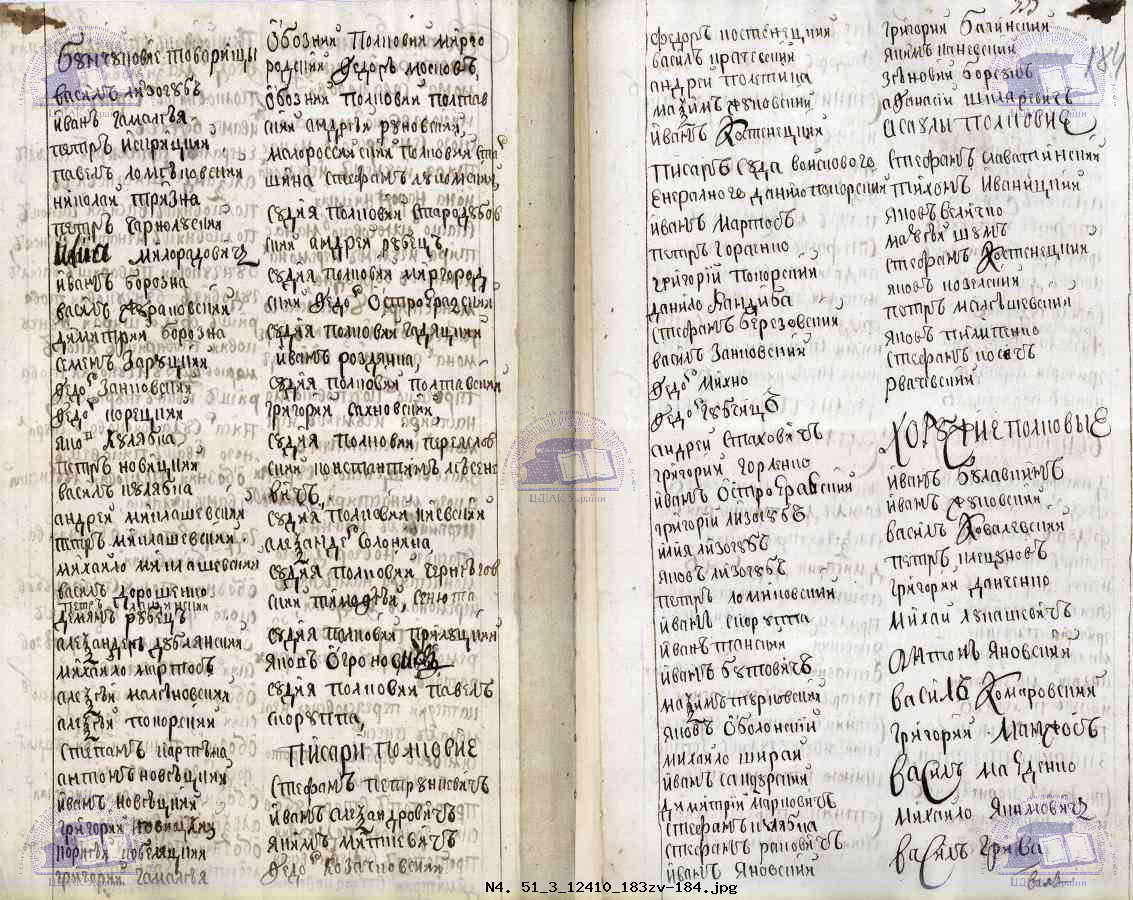 Бунчуковіе товарищы
василь лизогубъ
иванъ Гамалѣя
петръ Искрицкий
павелъ ломѣковский
николай Трызна
петръ Чарнолуский
Илия Милорадовичъ
иванъ борозна
василь Жураковский
димитрий борозна
семенъ Заруцкий
Ѳедоръ Занковский
Ѳедоръ корецкий
яковъ Жулябка
Петръ новицкий
василь кулябка
андрей миклашевский
петръ миклашевский
михайло миклашевский
василь дорошенко
Демянъ рубецъ
алеѯандеръ дублянский
михайло мартосъ
алеѯѣй малѣновский
алеѯѣй покорский
Степанъ карпѣка
антонъ новѣцкий
иванъ новѣцкий
григорий новицкий
григорий Гамалѣя
Обозний Полковий мирго
родский Ѳедоръ московъ,
Обозний полковий полтав
ский андрѣй руновский,
малороссийский полковий ста
шина стефанъ лукомский,
судия полковий Стародубов
ский андрей рубецъ,
судия полковий миргород
ский Ѳедоръ Остроградский
судия полковий гадяцкий
иванъ роздянка,
судия полковий полтавский
григорий сахновский,
судия полковий переяслов
ский константинъ лѣсене
вичъ,
судия полковий киевский
алеѯандеръ Солонина
судия полковий чернѣгов
ский тимоѳѣй, сенюта
судия полковий прилуцкий
яковъ Огроно
судия полковий павелъ
скорупа,
Писари полковие
стефанъ петрункевичъ
иванъ алеѯандровичъ
якимъ миткевичъ
Ѳедоръ Козачковский
Ѳедоръ костенецкий
василь кратевский
андрей политица
маѯимъ Жуковский
иванъ Костенецкий
Писаръ суда войскового
Енералного данило покорский
иванъ Мартосъ
петръ Горленко
григорій покорский
данило Кандиба
стефанъ березовский
василь Занковский
Ѳедоръ Михно
Ѳедоръ Губчицъ
андрей Стаховичъ
григорий горленко
иванъ Остроградский
григорій лизогубъ
илия лизогубъ
яковъ лизогубъ
петръ ломиковский
иванъ скорупа
иванъ танский
иванъ бутовичъ
маѯимъ турковский
яковъ Оболонский
михайло ширай
иванъ сангурский
димитрій марковичъ
стефанъ кулябка
стефанъ раковичъ
иванъ Яновский
григорий Батинский
яким каневский
зѣновий борсукъ
аѳанасій шкляревичъ
Асаулы полковие
стефанъ славатинский
тихонъ Иваницкий
яковъ величко
маѳѣй шумъ
стефанъ Костенецкий
яковъ козелский
петръ малѣшевский
яковъ пилипенко
стефанъ
рватевский
Хоружие полковые
иванъ булавкинъ
иванъ Жуковский
василь Ковалевский
петръ кицуновъ
григорий даценко
михай лукашевичъ
антонъ Яновский
василь Комаровский
григорий Манжосъ
василь маѳденко
михайло Якимовичъ
василь Грива
184
N4. 51_3_12410_183zv-184.jpg